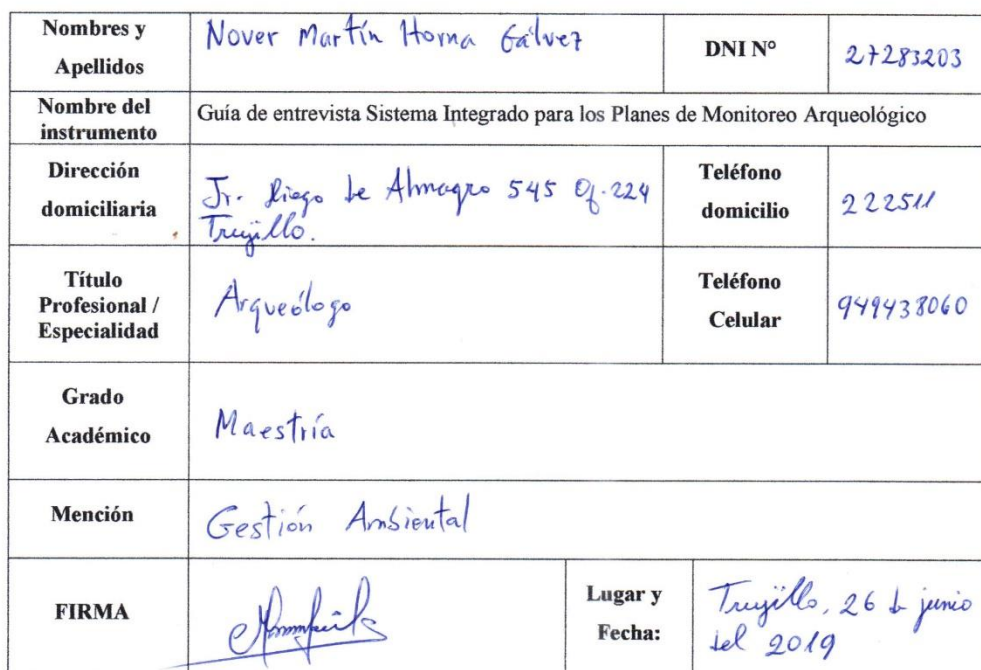 Nombres y
Apellidos
Nover Martín Horna Gálvez
DNI N°
27283203
Nombre del
instrumento
Guía de entrevista Sistema Integrado para los Planes de Monitoreo Arqueológico
Dirección
domiciliaria
Jr. Diego de Almagro 545 Of. 224
Trujillo.
Teléfono
domicilio
222511
Título
Profesional /
Especialidad
Arqueólogo
Teléfono
Celular
949438060
Grado
Académico
Maestría
Mención
Gestión Ambiental
FIRMA
Lugar y
Fecha:
Trujillo, 26 de junio
del 2019